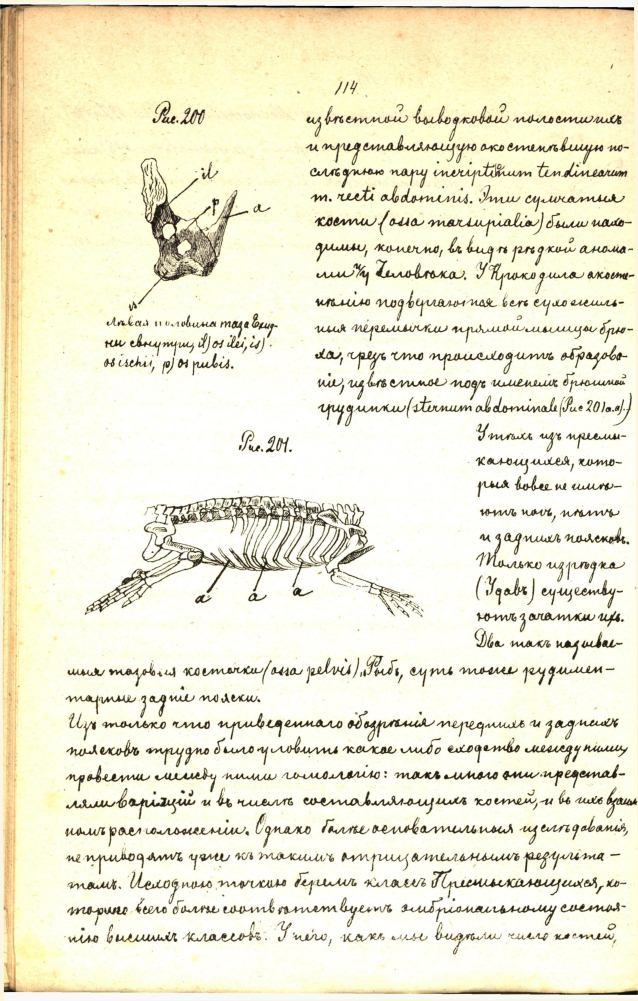 114
Рис. 200
il
p
a
is
Лѣвая половина таза Ехид-
ны свнутри, il) os ilei, is)
os ischii, p) os pubis.
извѣстной выводковой полости ихъ
и представляющую окостенѣвшую по-
слѣднюю пару incriptinum tendinearum
m. recti abdominis. Эти сумчатыя
кости (ossa marsupialia) были нахо-
димы, конечно, въ видѣ рѣдкой анома-
ліи у Человѣка. У Крокодила окосте-
ненію подвергаются всѣ сухожиль-
ныя перемычки прямой мышцы брю-
ха, чрезъ что происходитъ образова-
ніе, извѣстное подъ именемъ брюшной
грудинки (sternum abdominale (Рис 201 a.a).)
Рис. 201.
a a a
У тѣхъ изъ пресмы-
кающихся, кото-
рыя вовсе не имѣ-
ютъ ногъ, нѣтъ
и заднихъ поясковъ.
Только изрѣдка
(Удавъ) существу-
ютъ зачатки ихъ.
Два такъ называе-
мыя тазовыя косточки (ossa pelvis) Рыбъ, суть тоже рудимен-
тарные задніе пояски.
Изъ только что приведеннаго обозрѣнія переднихъ и заднихъ
поясковъ трудно было уловить какое либо сходство между ними,
провести между ними гомологію: такъ много они представ-
ляли варіяцій и въ числѣ составляющихъ костей, и въ ихъ взаим-
номъ расположеніи. Однако болѣе основательныя изслѣдованія,
не приводятъ уже къ такимъ отрицательнымъ результа-
тамъ. Исходною точкою беремъ классъ Пресмыкающихся, ко-
торый всего болѣе соотвѣтствуетъ эмбріональному состоя-
нію высшихъ классовъ. У него, какъ мы видѣли число костей,